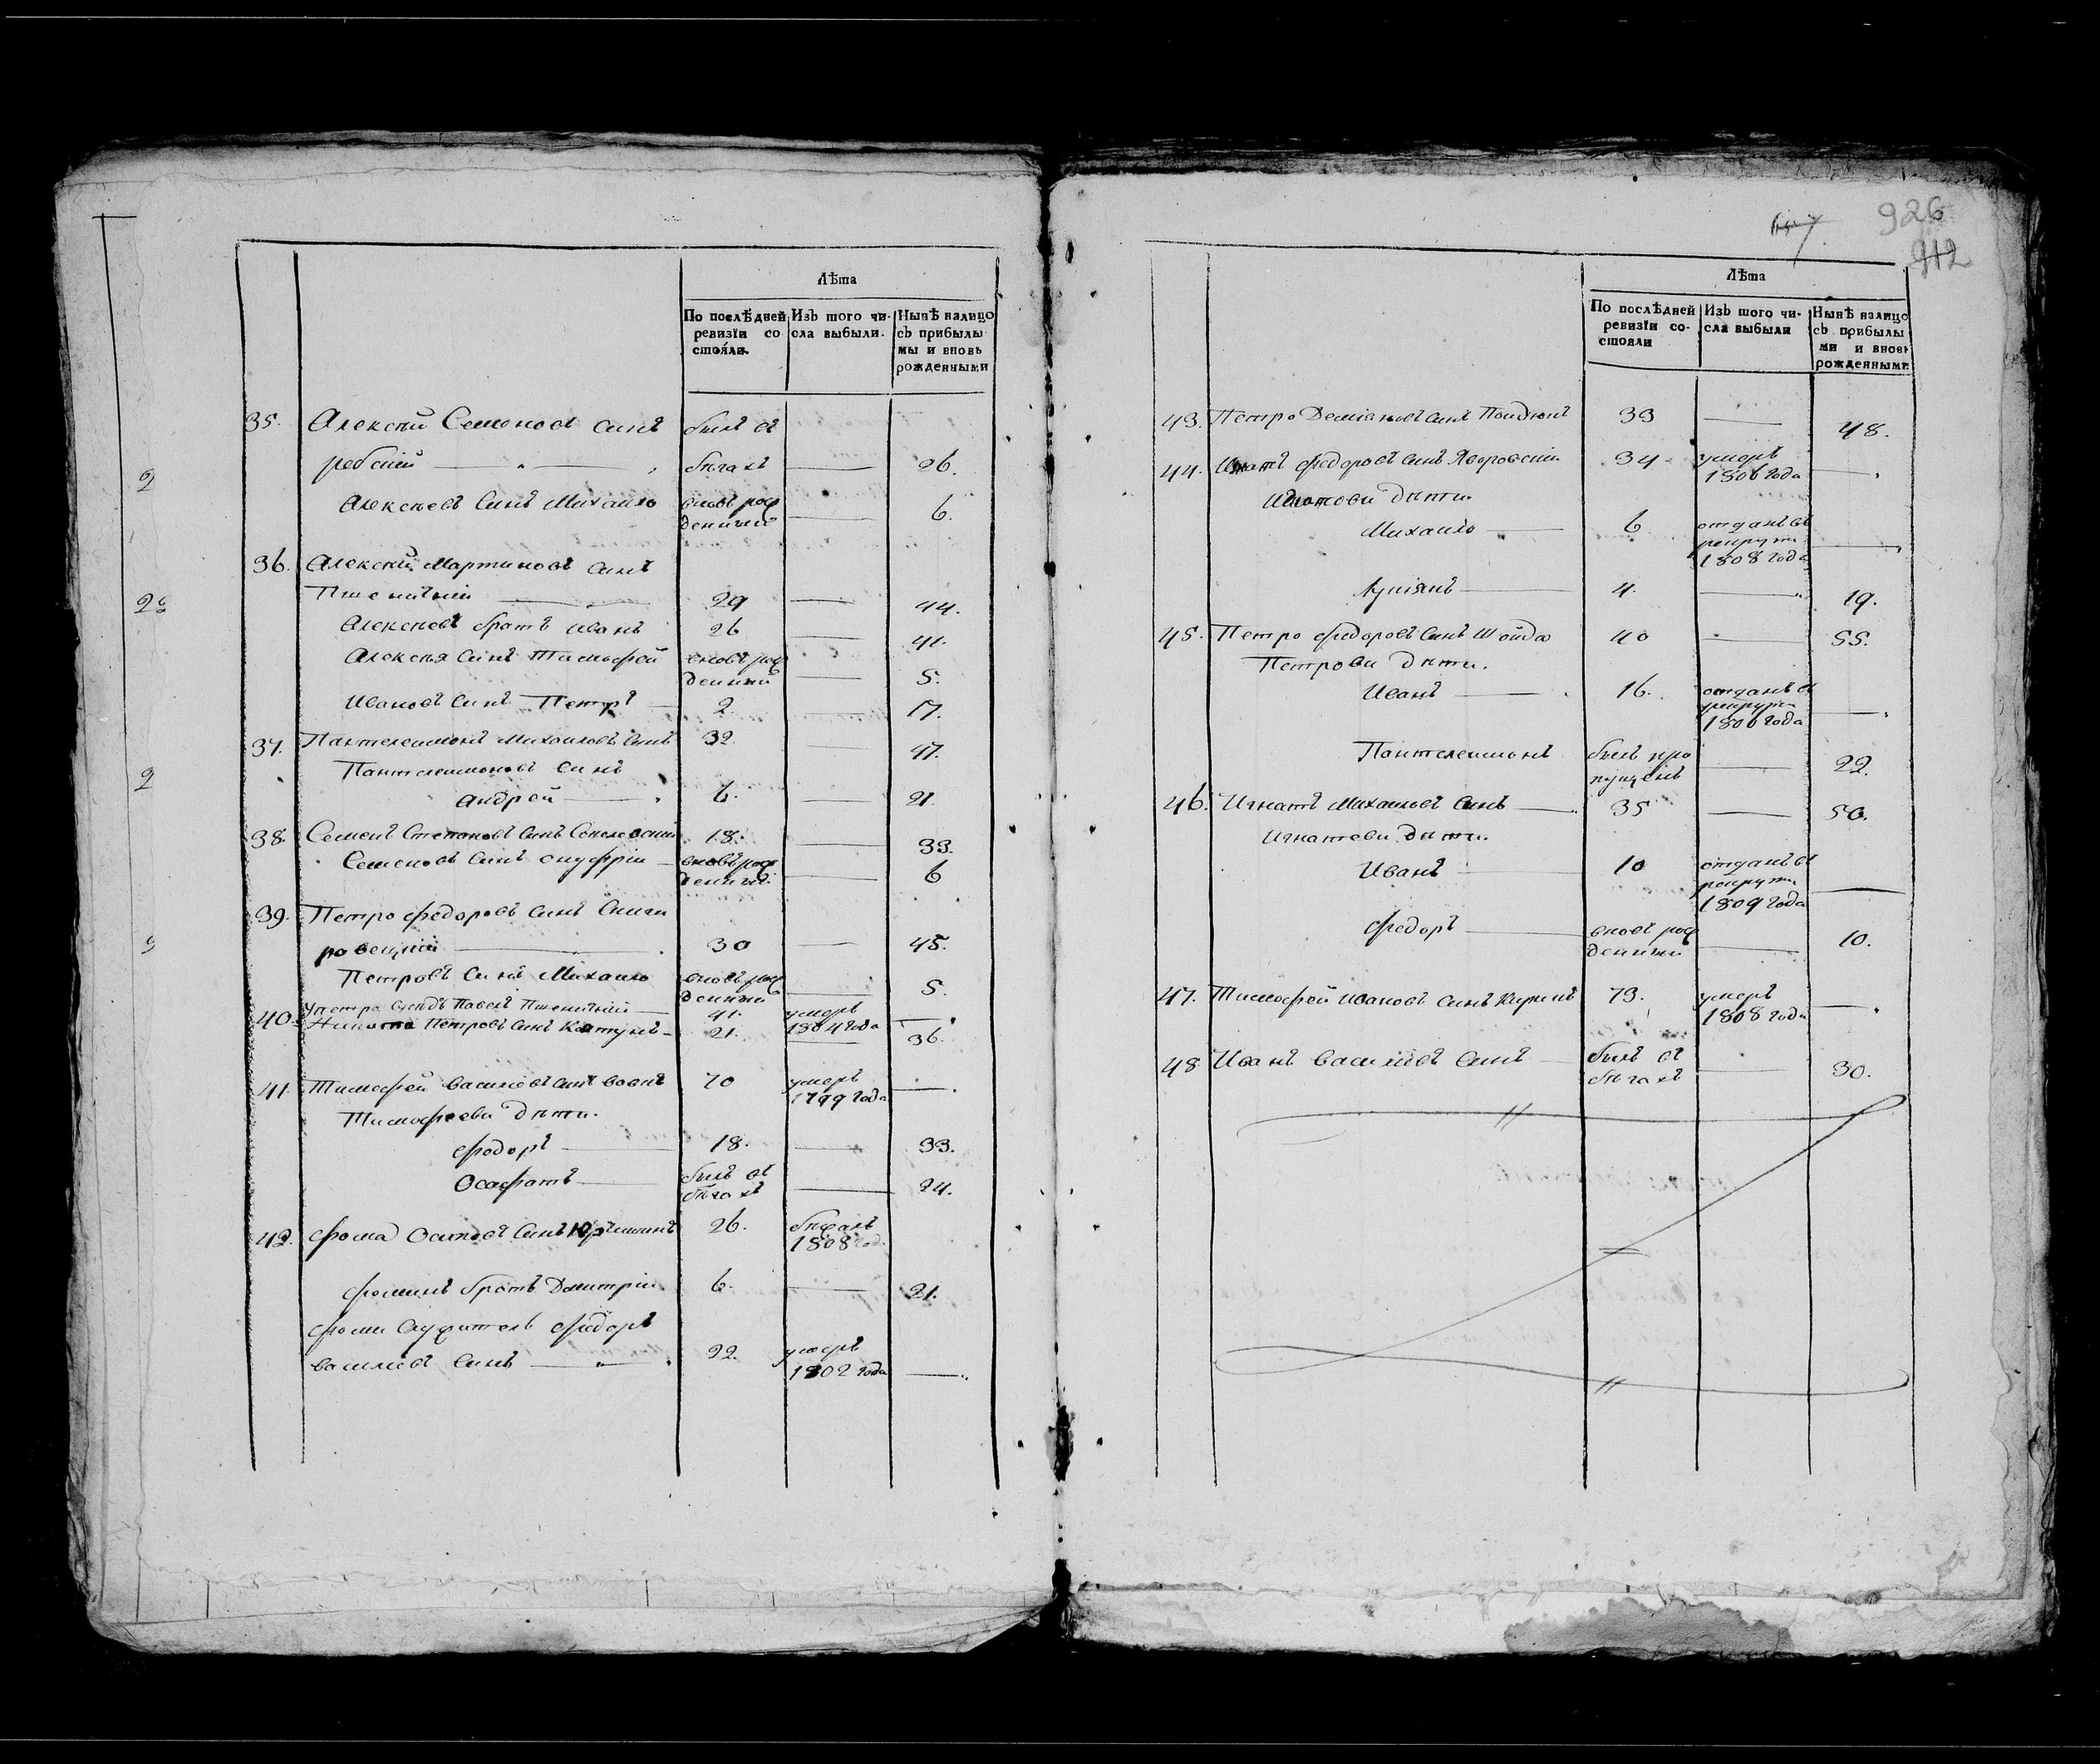 Лѣта
По послѣдней ревизіи со-стояли.
Изъ того чи-сла выбыли.
Нынѣ налицо съ прибылы-мы и вновь рожденными
35. Алексѣй Семеновъ синъ былъ въ
ребскій бѣгахъ — 26.
Алексѣевъ Синъ Михайло вновъ рож
денний — 6.
36. Алексѣй Мартиновъ Синъ
Пшеничній 29 — 44.
Алексѣевъ братъ Иванъ 26 — 41.
Алексѣя Синъ Тимофей вновъ рож
денний — 5.
Ивановъ Синъ Петръ 2. — 17.
37. Пантелеимонъ Михайловъ Синъ 32. — 47.
Пантелеимоновъ Синъ
Андрей 6. — 21.
38. Семенъ Степановъ Синъ Соколовскій 18. — 33.
Семеновъ Синъ Онуфрій вновъ рож
денний — 6
39. Петро Федоровъ Синъ Снеги
ровецкій 30 — 45.
Петровъ Синъ Михайло вновъ рож
денний — 5.
У Петра сусѣдъ Павелъ Пшеничній 41. умеръ
1804 года —
40. Никита Петровъ Синъ 21. — 36.
41. Тимофей Василіевъ Синъ 70 умеръ
1799 года —
Тимофееви дѣти.
Федоръ 18. — 33.
Осафатъ былъ въ
бѣгахъ — 24.
42. Фома Осиповъ Синъ 26. бѣжалъ
1808 год.
Фоминъ братъ Дмитрій 6. — 21.
Фоми служитель Федоръ
Василіевъ Синъ 22. умеръ
1802 года —
926
912
Лѣта
По послѣдней ревизіи со-стояли
Изъ того чи-сла выбыли
Нынѣ налицо съ прибылы-ми и вновь рожденными
43. Петро Деміановъ Синъ 33 — 48.
44. Игнатъ Федоровъ Синъ Яворовскій 34 умеръ
1806 года —
Игнатови дѣти.
Михайло 6 отданъ въ
рекрути
1808 года —
Лукіянъ 4. — 19.
45. Петро Федоровъ Синъ Шойда 40 — 55.
Петрови дѣти.
Иванъ 16. отданъ въ
рекрути
1806 года —
Пантелеимонъ былъ про
пущенъ — 22.
46. Игнатъ Михайловъ Синъ 35 — 50.
Игнатеви дѣти.
Иванъ 10 отданъ въ
рекрути
1809 года —
Федоръ вновъ рож
денний — 10.
47. Тимофей Ивановъ Синъ 73. умеръ
1808 года —
48 Иванъ Василіевъ Синъ былъ въ
бѣгахъ — 30.